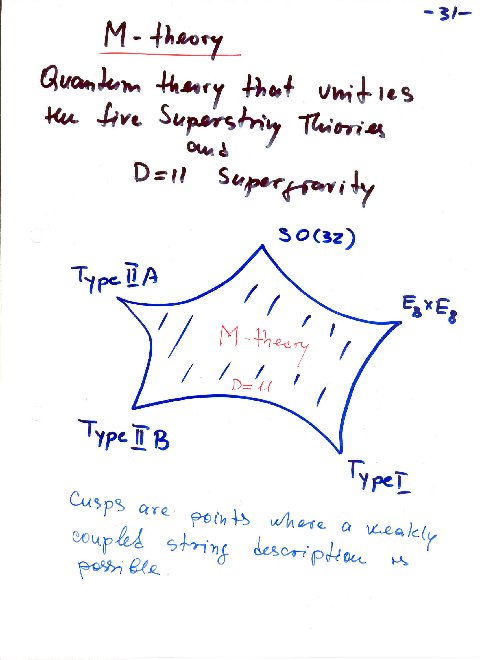 -31-
M-theory
Quantum theory that unifies
the five Superstring Theories
and
D=11 Supergravity
SO(32)
Type IIA
E₈×E₈
M-theory
D=11
Type IIB
Type I
Cusps are points where a weakly
coupled string description is
possible.